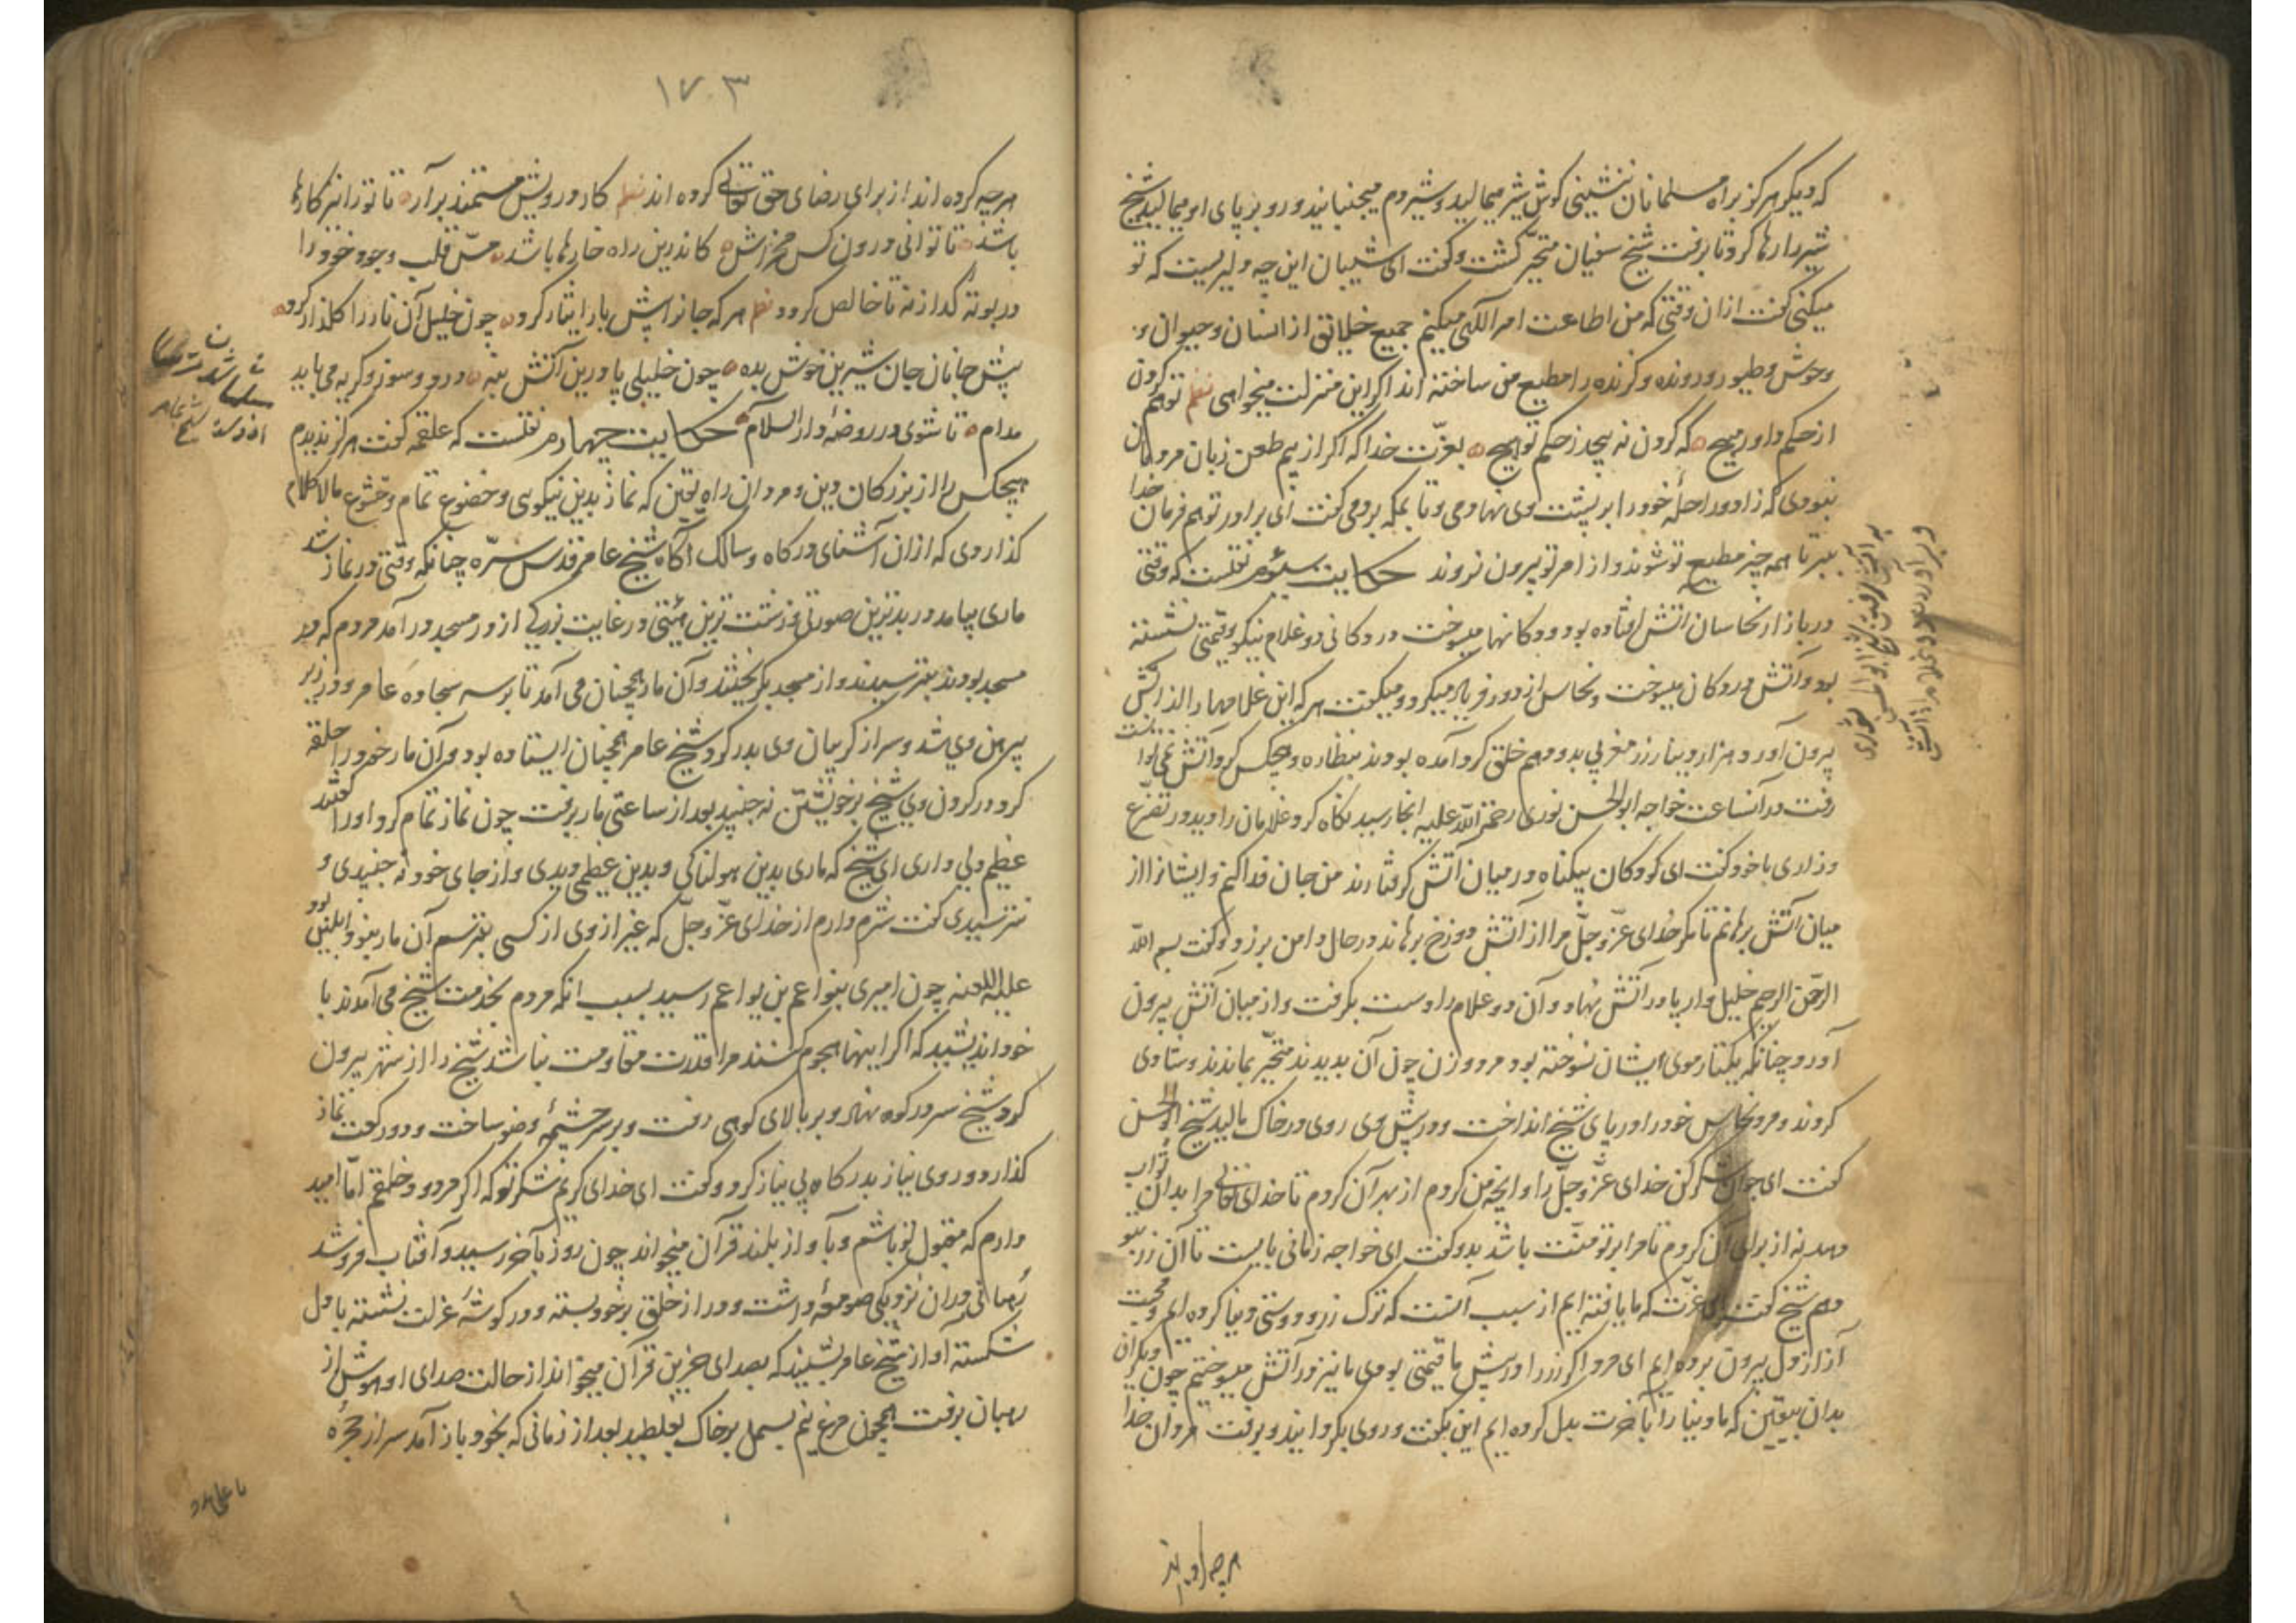 که دیکر هرکز براه مسلمانان ننشینی کوش شیر میمالید و شیر دم میجنبانید و رو بر پای او میمالید شیخ
شیر را رها کرد تا برفت شیخ سفیان متحیّر کشت و کفت ای شیبان این چه دلیریست که تو
میکنی کفت ازان وقتی که من اطاعت امر الهی میکنم جمیع خلایق از انسان و حیوان و
وحوش و طیور و درونده و کزنده را مطیع من ساخته اند اکر این منزلت میخواهی نظم تو هم کردن
از حکم داور مپیچ که کردن نه پیچد ز حکم تو هیچ بعزّت خدا که اکر از بیم طعن زبان مردمان
نبودی که زاد و راحلهٔ خود را بر پشت وی نهادمی و تا بمکه بردمی کفت ای برادر تو هم فرمان خدا
ببر تا همه چیز مطیع تو شوند و از امر تو بیرون نروند حکایت سیوم نقلست که وقتی
در بازار نخاسان اتش افتاده بود و دکانها میسوخت در دکانی دو غلام نیکو قیمتی نشسته
بود و آتش در دکان میسوخت و نخاس از دور فریاد میکرد و میکفت هر که این غلامها را از اتش
بیرون آورد هزار دینار زر مغربی بدو دهم خلق کرد آمده بودند بنظاره و هیچکس کرد آتش نمی توانست
رفت در آنساعت خواجه ابوالحسن نوری رحمة الله علیه انجا رسید نکاه کرد غلامان را دید در تضرع
و زاری با خود کفت ای کودکان بیکناه در میان آتش کرفتارند من جان فدا کنم و ایشانرا از
میان آتش برهانم تا مکر خدای عزّ و جلّ مرا از آتش دوزخ برهاند در حال دامن بر زد و کفت بسم الله
الرحمن الرحیم خلیل وار پا در آتش نهاد و آن دو غلام را دست بکرفت و از میان آتش بیرون
آورد چنانکه یکتار موی ایشان نسوخته بود مرد و زن چون آن بدیدند متحیّر بماندند و شادی
کردند و مرد نخاس خود را در پای شیخ انداخت و در پیش وی روی در خاک مالید شیخ ابوالحسن
کفت ای جوان شکر کن خدای عزّ و جلّ را و انچه من کردم از بهر آن کردم تا خدای تعالی مرا بدان ثواب
دهد نه از برای آن کردم تا مرا بر تو منّت باشد بدو کفت ای خواجه زمانی بایست تا آن زر بتو
دهم شیخ کفت ای عزیز که ما یافته ایم از سبب آنست که ترک زر و دوستی دنیا کرده ایم و محبت
آنرا از دل بیرون برده ایم ای مرد اکر زر را در پیش ما قیمتی بودی ما نیز در آتش میسوختیم چون دیکران
بدان بیقین که ما دنیا را بآخرت بدل کرده ایم این بکفت و روی بکردانید و برفت مردان خدا
۱۷۳
هر چه کرده اند از برای رضای حق تعالی کرده اند نظم کار درویش مستمند برآر تا تو را نیز کارها
باشد تا توانی درون کس مخراش کاندرین راه خارها باشد مسّ قلب وجود خود را
در بوته کداز نه تا خالص کردد نظم هر که جانرا پیش یار ایثار کرد چون خلیل آن نار را کلزار کرد
پیش جانان جان شیرین خوش بده چون خلیلی پا درین آتش بنه درد و سوز و کریه می باید
مدام تا شوی در روضهٔ دار السلام حکایت چهارم نقلست که علقمه کفت هرکز ندیدم
هیچکس را از بزرکان دین و مردان راه یقین که نماز بدین نیکویی و خضوع تمام و خشوع مالاکلام
کذاردی که از ان آشنای درکاه و سالک آکاه شیخ عامر قدس سرّه چنانکه وقتی در نماز شد
ماری بیامد در بدترین صورتی و زشت ترین هیئتی در غایت بزرکی از در مسجد در آمد مردم که در
مسجد بودند بترسیدند و از مسجد بکریختند و آن مار همچنان می آمد تا بر سر سجاده عامر و در زیر
پیرهن وی شد و سر از کریبان وی بدر کرد شیخ عامر همچنان ایستاده بود و آن مار خود را حلقه
کرد در کردن وی شیخ بر خویشتن نه جنبید بعد از ساعتی مار برفت چون نماز تمام کرد او را کفتند
عظیم دلی داری ای شیخ که ماری بدین هولناکی و بدین عظیمی دیدی و از جای خود نه جنبیدی و
نترسیدی کفت شرم دارم از خدای عزّ و جلّ که غیر از وی از کسی بترسم آن مار نبود ابلیس بود
علیه اللعنه چون امیری بنو اعم بن بو اعم رسید بسبب انکه مردم بخدمت شیخ می آمدند با
خود اندیشید که اکر اینها هجوم کنند مرا قدرت مقاومت نباشد شیخ را از شهر بیرون
کرد شیخ سر در کوه نهاد و بر بالای کوهی رفت و بر سر چشمهٔ وضو ساخت و دو رکعت نماز
کذارد و روی نیاز بدرکاه بی نیاز کرد و کفت ای خدای کریم شکر تو که اکر مردود خلقم امّا امید
دارم که مقبول تو باشم و بآواز بلند قرآن میخواند چون روز بآخر رسید و آفتاب فرو شد
رهبانی در ان نزدیکی صومعهٔ داشت و در از خلق بر خود بسته و در کوشهٔ عزلت نشسته با دل
شکسته آواز شیخ عامر بشنید که بصدای حزین قرآن میخواند از حالت صدای او هوش از
رهبان برفت همچون مرغ نیم بسمل بر خاک بغلطید بعد از زمانی که بخود باز آمد سر از حجرهٔ